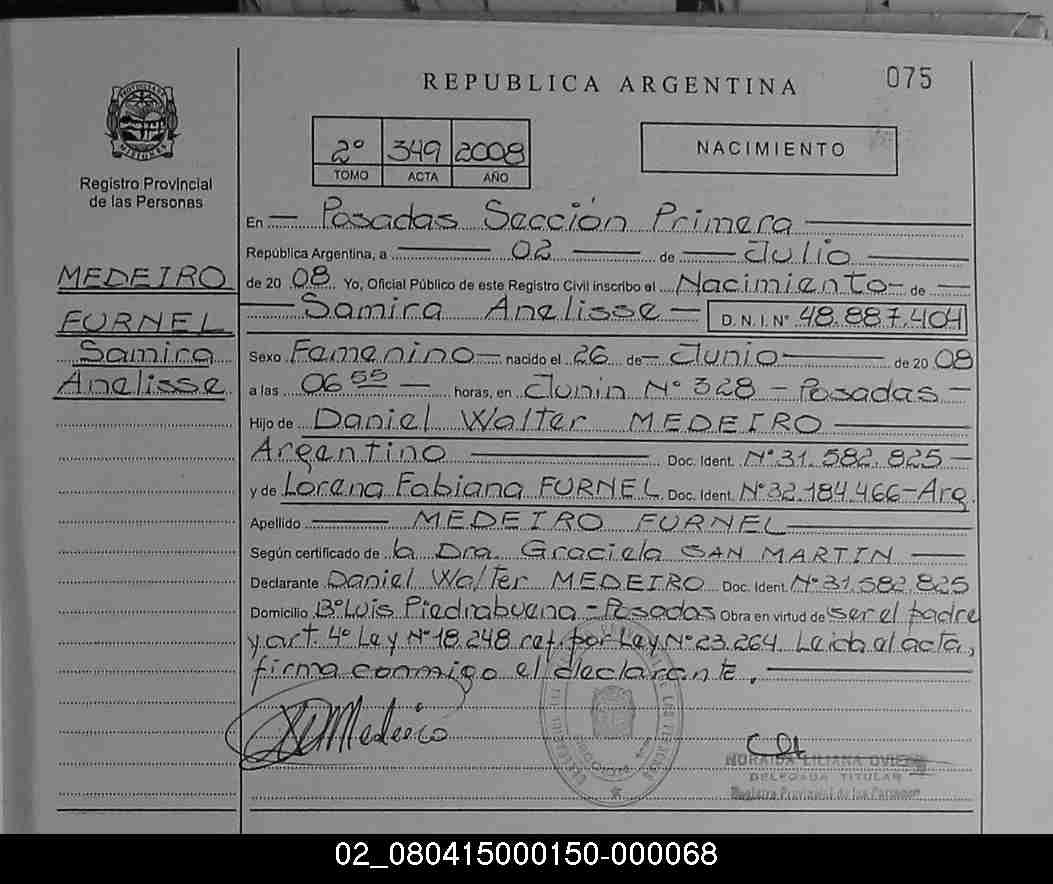 REPUBLICA ARGENTINA
075
PROVINCIA DE
MISIONES
Registro Provincial
de las Personas
2º 349 2008
TOMO ACTA AÑO
NACIMIENTO
MEDEIRO
FURNEL
Samira
Anelisse
En Posadas Sección Primera
República Argentina, a 02 de Julio
de 20 08 Yo, Oficial Público de este Registro Civil inscribo el Nacimiento de
Samira Anelisse D. N. I. Nº 48.887.404
Sexo Femenino nacido el 26 de Junio de 20 08
a las 06 55 horas, en Junin Nº 328 - Posadas
Hijo de Daniel Walter MEDEIRO
Argentino Doc. Ident. Nº 31.582.825
y de Lorena Fabiana FURNEL Doc. Ident. Nº 32.184.466-Arg.
Apellido MEDEIRO FURNEL
Según certificado de la Dra. Graciela SAN MARTIN
Declarante Daniel Walter MEDEIRO Doc. Ident. Nº 31.582.825
Domicilio Bº Luis Piedrabuena - Posadas Obra en virtud de ser el padre
y art. 4º Ley Nº 18.248 ref. por Ley Nº 23.264. Leida el acta,
firma conmigo el declarante.
Medeiro
LILIANA
DELEGADA TITULAR
Registro Provincial de las Personas
02_080415000150-000068